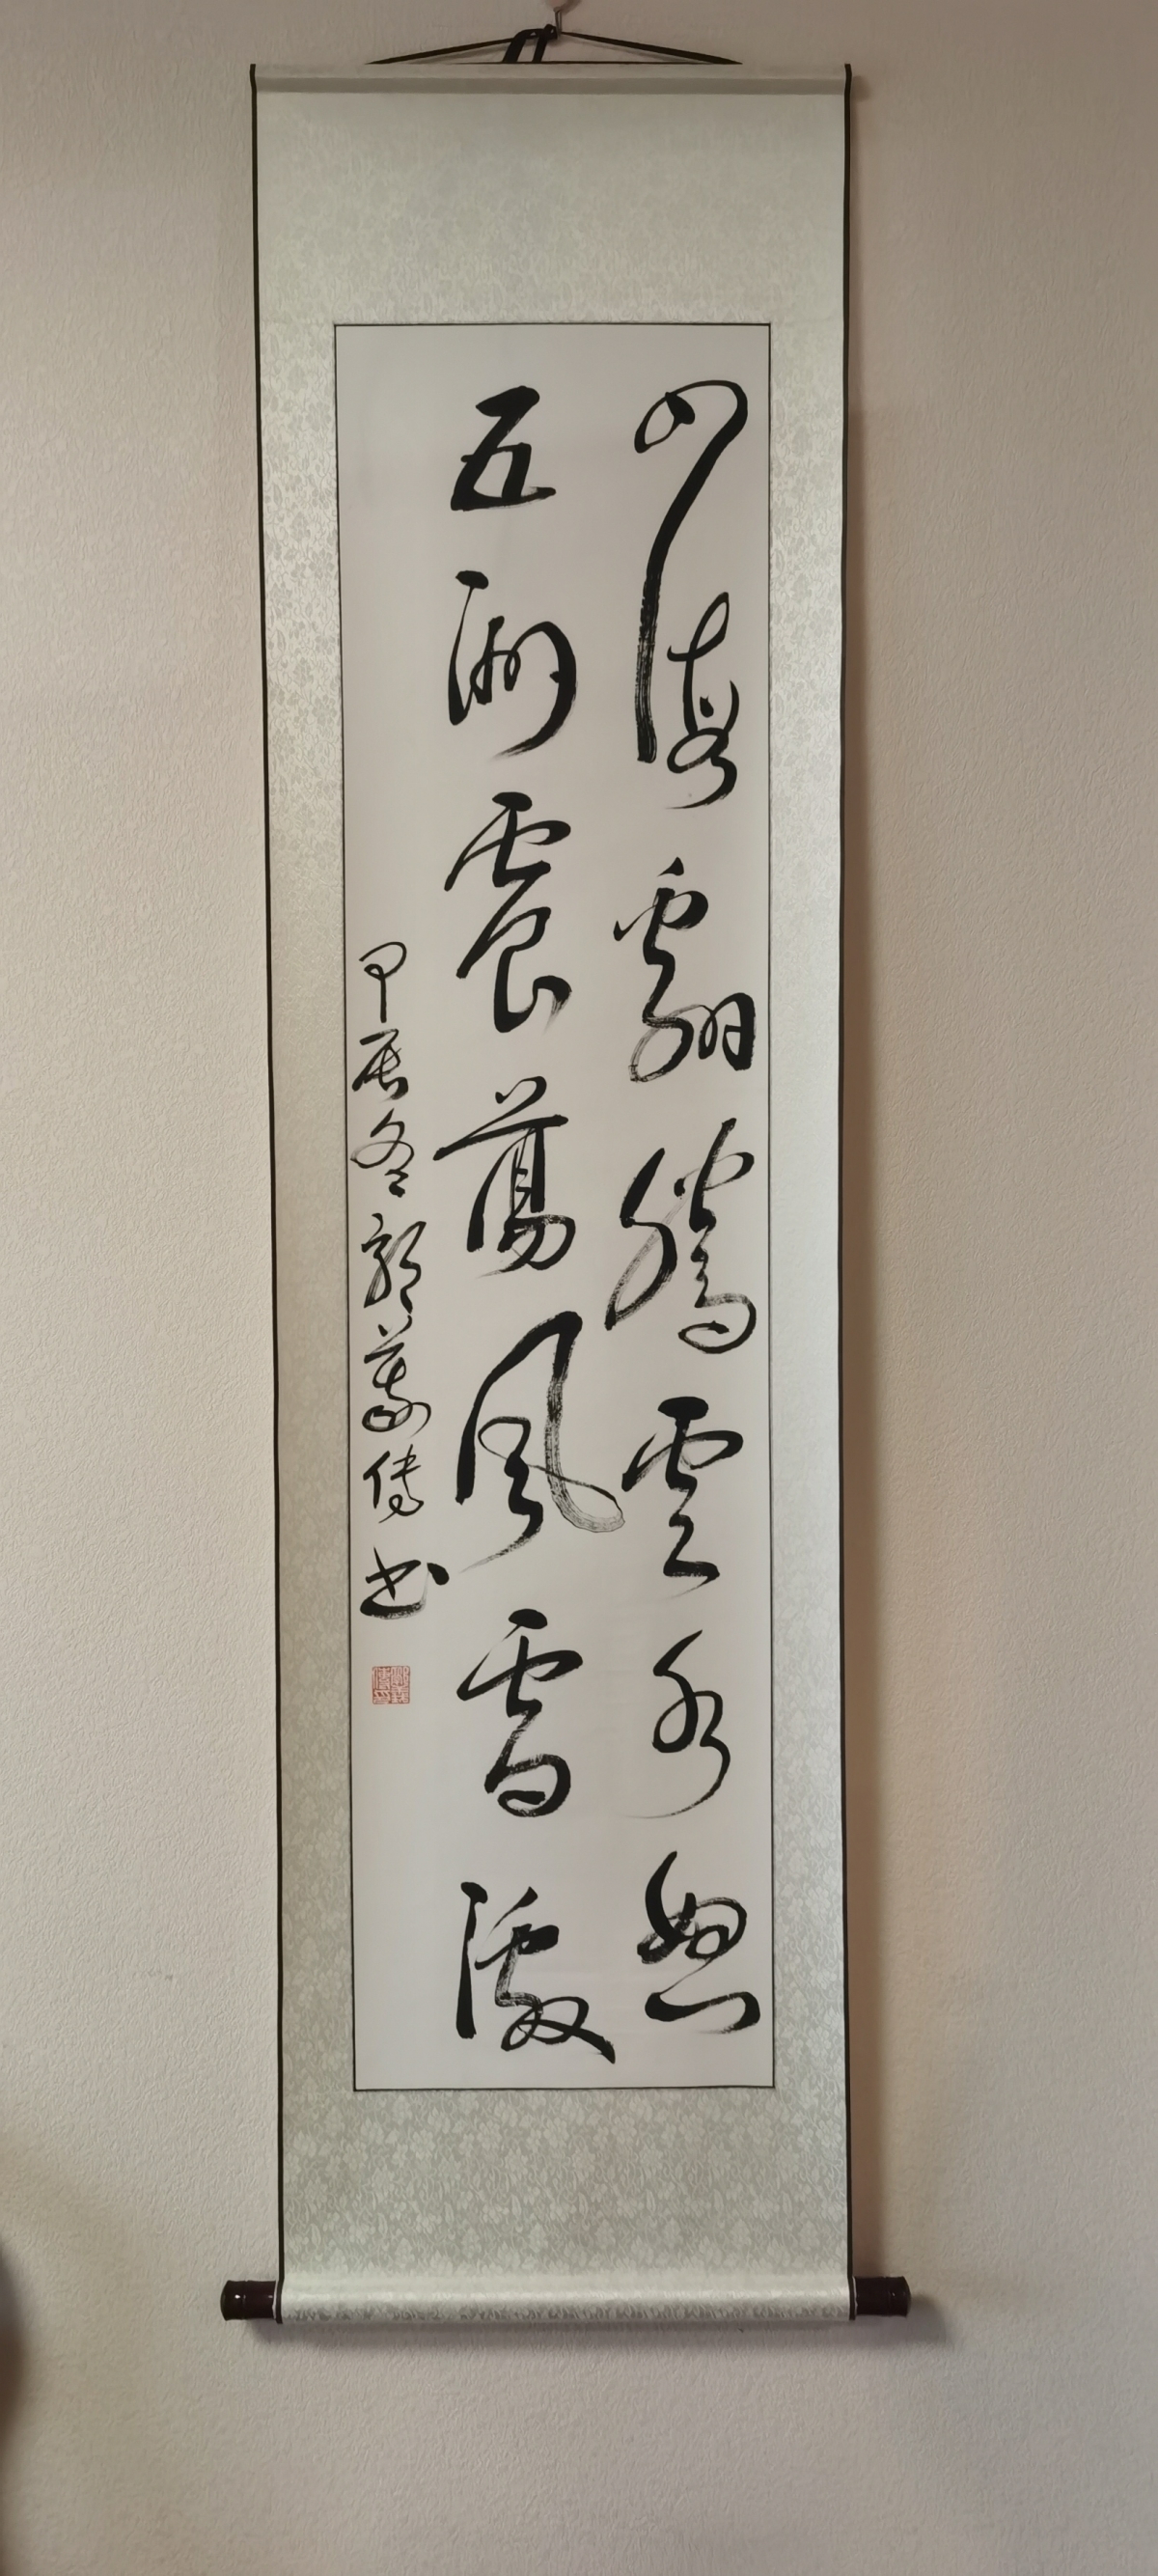 四海翻騰雲水怒
五洲震蕩風雷激
甲辰冬義傳书